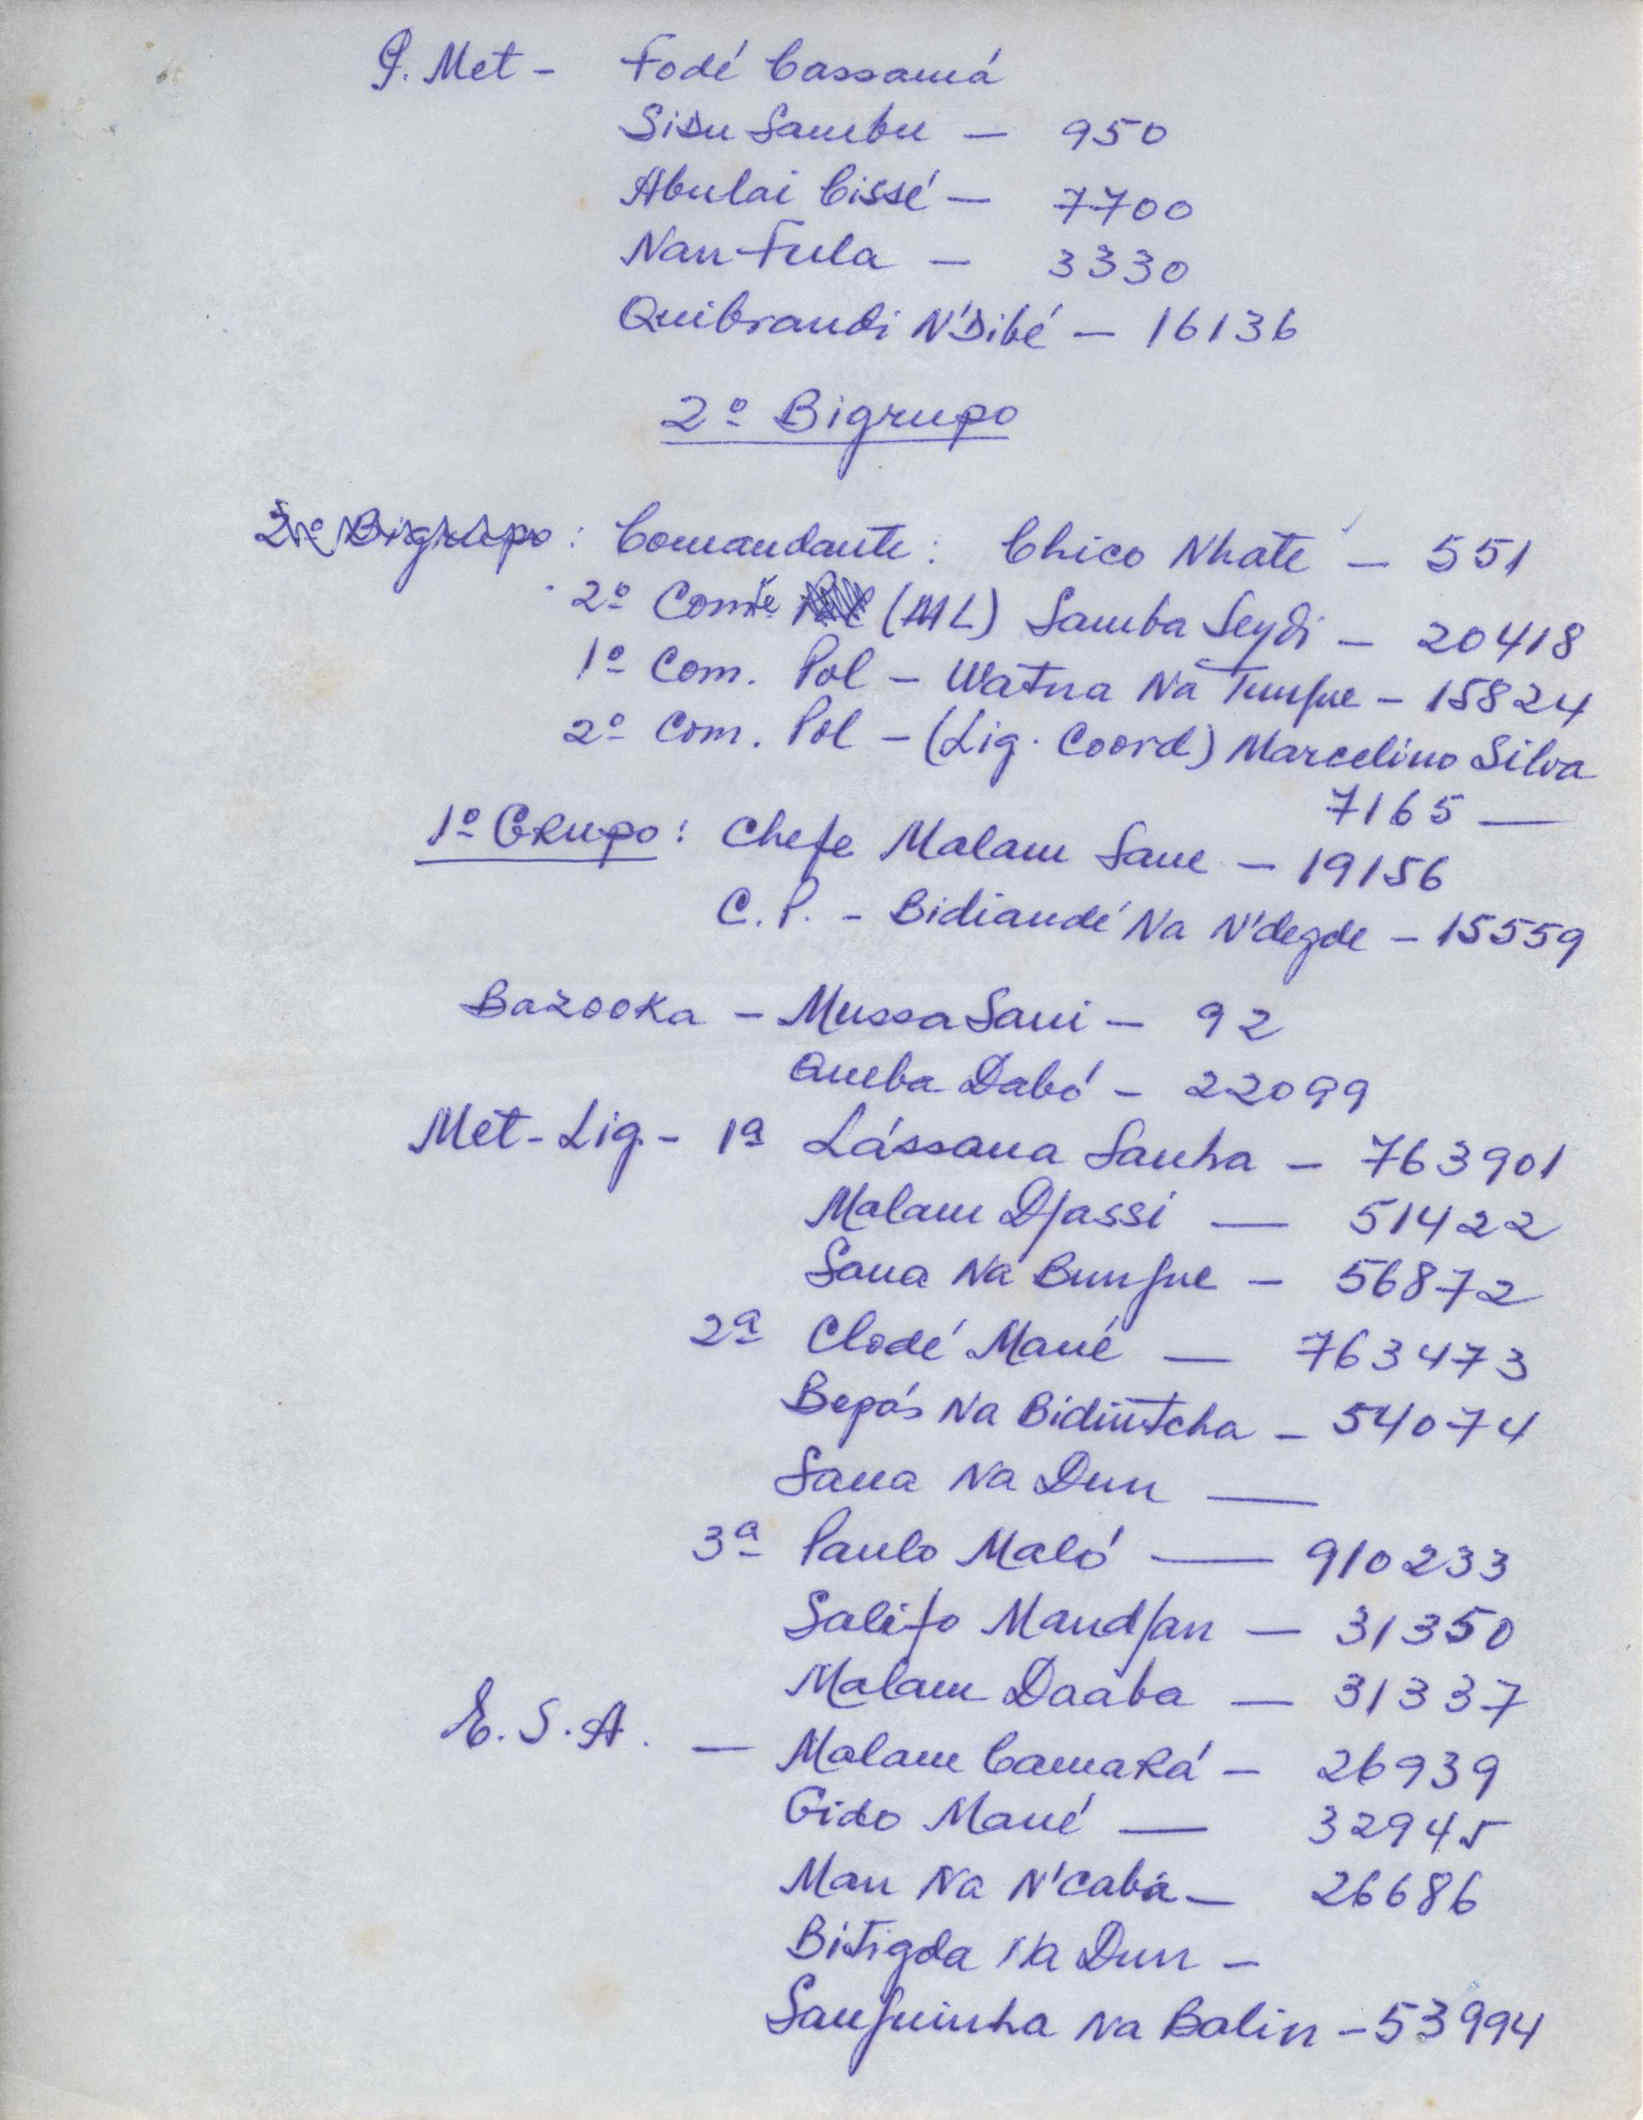 P. Met - Fodé Cassamá
Sidu Sambu - 950
Abulai Cissé - 7700
Nan Fula - 3330
Quibrandi N'Dibé - 16136
2º Bigrupo
2º Bigrupo : Comandante : Chico Nhate - 551
2º Comte (ML) Samba Seydi - 20418
1º Com. Pol - Watna Na Tungue - 15824
2º Com. Pol - (Lig. Coord) Marcelino Silva
7165 -
1º Grupo : Chefe Malam Sane - 19156
C. P. - Bidiandé Na N'degde - 15559
Bazooka - Mussa Sani - 92
Queba Dabó - 22099
Met - Lig. - 1ª Lássana Sanha - 763901
Malam Djassi - 51422
Sana Na Bungue - 56872
2ª Clodé Mané - 763473
Bepás Na Bidintcha - 54074
Sana Na Dun -
3ª Paulo Maló - 910233
Salifo Mandjan - 31350
Malam Daaba - 31337
E. S. A. - Malam Camará - 26939
Gido Mané - 32945
Man Na N'caba - 26686
Bitigda Na Dun -
Sanguinha Na Balin - 53994